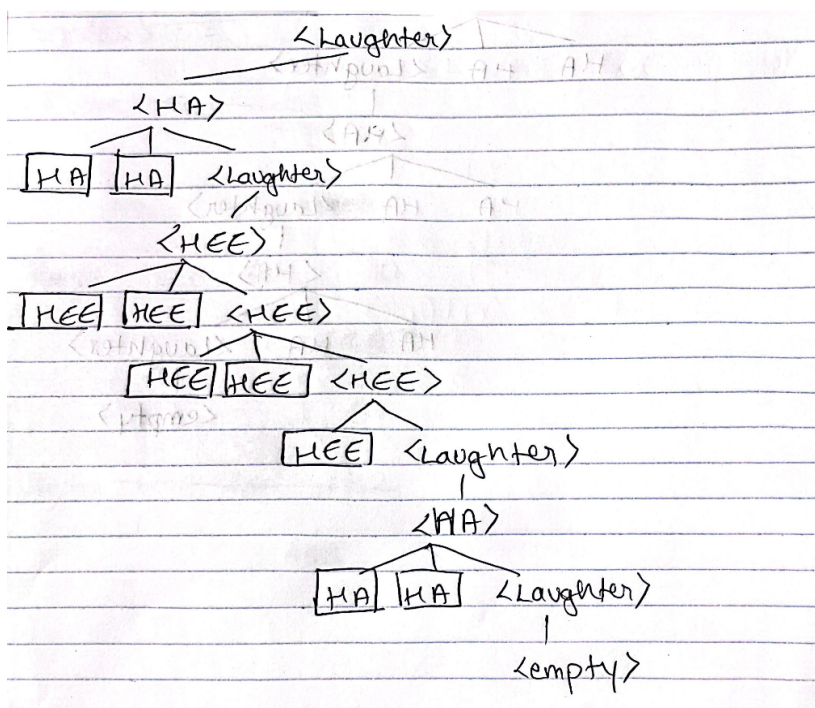 <Laughter>
<HA>
HA HA <Laughter>
<HEE>
HEE HEE <HEE>
HEE HEE <HEE>
HEE <Laughter>
<HA>
HA HA <Laughter>
<empty>